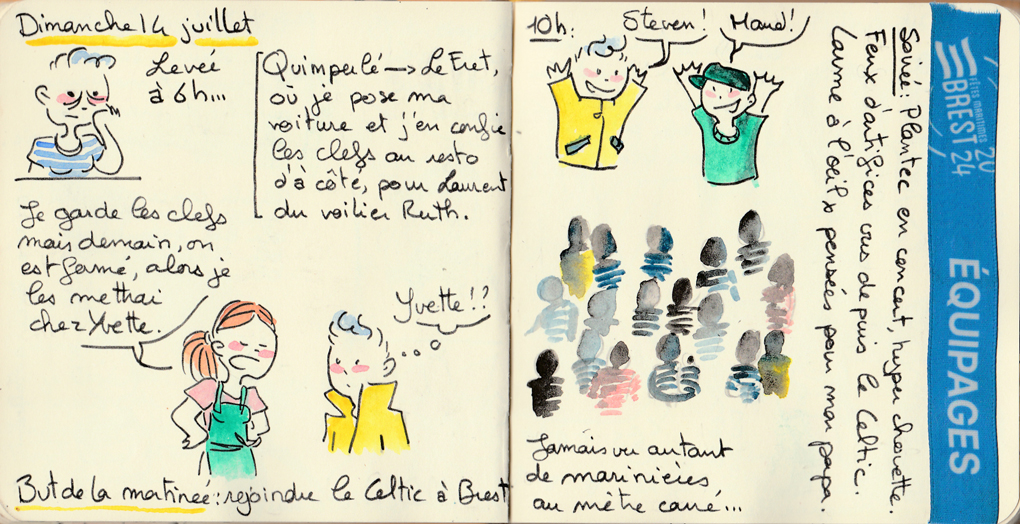 Dimanche 14 juillet
Levée
à 6h...
Quimperlé → Le Fret,
où je pose ma
voiture et j'en confie
les clefs au resto
d'à côté, pour Laurent
du voilier Ruth.
Je garde les clefs
mais demain, on
est fermé, alors je
les mettrai
chez Yvette.
Yvette!!?
But de la matinée : rejoindre le Celtic à Brest
10h:
Steven!
Maud!
Jamais vu autant
de marinières
au mètre carré...
Soirée : Plantec en concert, hyper chouette.
Feux d'artifices vus depuis le Celtic.
Larme à l'oeil x pensées pour mon papa.
FÊTES MARITIMES
BREST 2024
ÉQUIPAGES